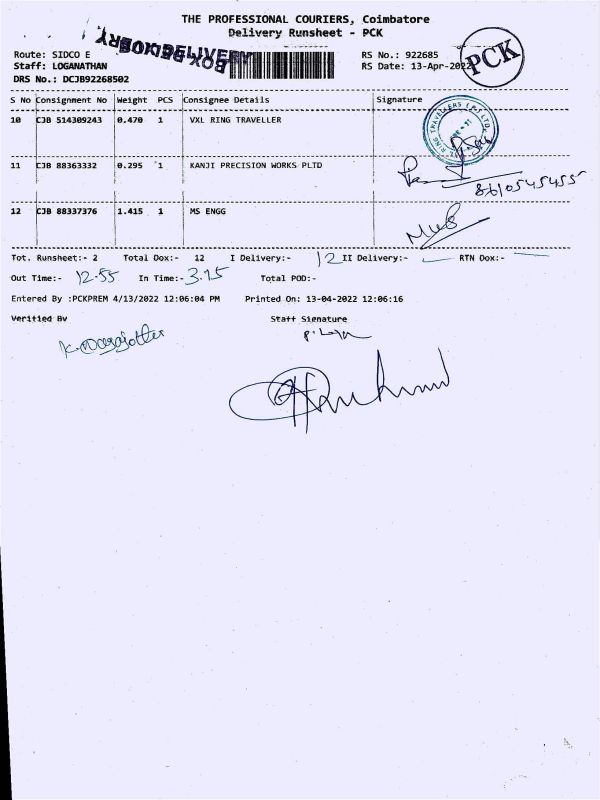 THE PROFESSIONAL COURIERS, Coimbatore
Delivery Runsheet - PCK
Route: SIDCO E
Staff: LOGANATHAN
DRS No.: DCJB92268502
RS No.: 922685
RS Date: 13-Apr-2022
PCK
S No Consignment No Weight PCS Consignee Details Signature
10 CJB 514309243 0.470 1 VXL RING TRAVELLER
11 CJB 88363332 0.295 1 KANJI PRECISION WORKS PLTD
8610545455
12 CJB 88337376 1.415 1 MS ENGG
Tot. Runsheet:- 2 Total Dox:- 12 I Delivery:- 12 II Delivery:- RTN Dox:-
Out Time:- 12.55 In Time:- 3.15 Total POD:-
Entered By :PCKPREM 4/13/2022 12:06:04 PM Printed On: 13-04-2022 12:06:16
Verified By Staff Signature